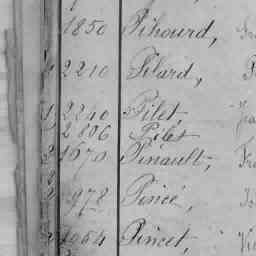 1850 Pihourd,
2210 Pilard,
2240 Pilet,
2806 Pilet
1670 Pinault,
1978 Pincé,
1954 Pincet,